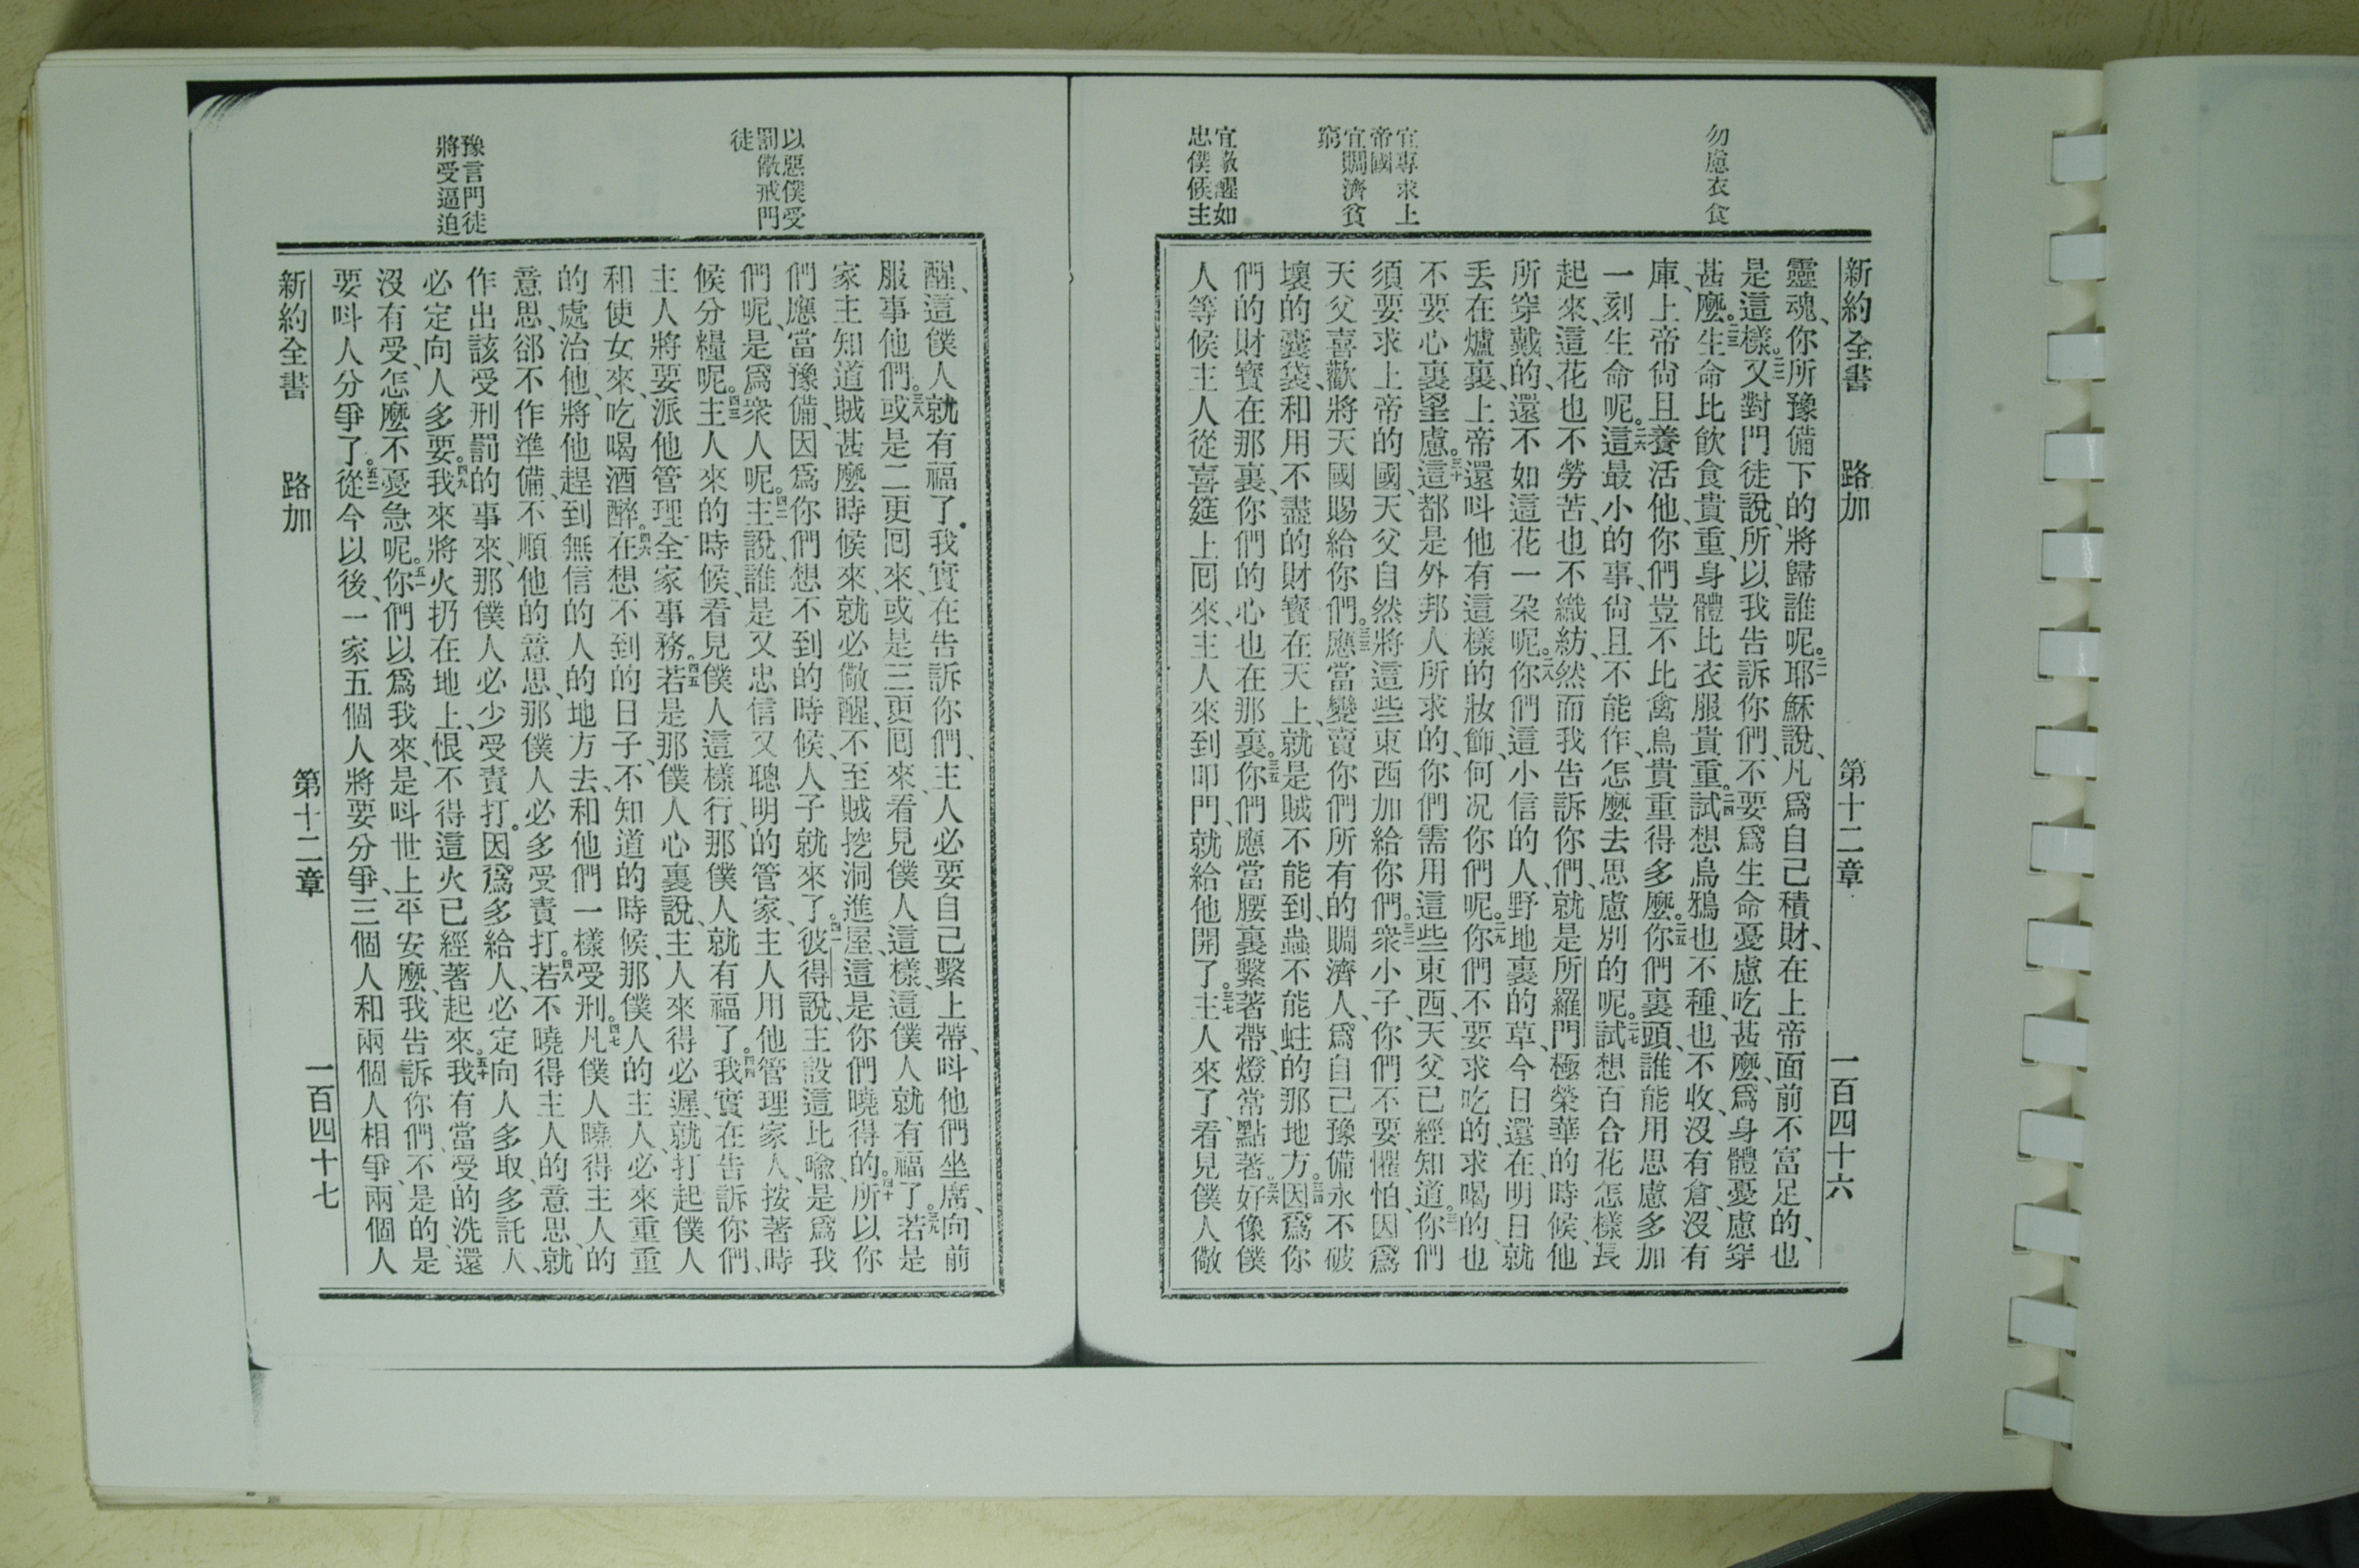 勿慮衣食
宜專求上
帝國
宜賙濟貧
窮
宜儆醒如
忠僕候主
新約全書 路加 第十二章 一百四十六
靈魂、你所豫備下的將歸誰呢。二一耶穌說、凡爲自己積財、在上帝面前不富足的、也
是這樣。二二又對門徒說、所以我告訴你們、不要爲生命憂慮吃甚麼、爲身體憂慮穿
甚麼。二三生命比飲食貴重、身體比衣服貴重。二四試想烏鴉也不種、也不收、沒有倉、沒有
庫、上帝尙且養活他、你們豈不比禽鳥貴重得多麼。二五你們裏頭、誰能用思慮多加
一刻生命呢。二六這最小的事、尙且不能作、怎麼去思慮別的呢。二七試想百合花怎樣長
起來、這花也不勞苦、也不織紡、然而我告訴你們、就是所羅門極榮華的時候、他
所穿戴的、還不如這花一朶呢。二八你們這小信的人、野地裏的草、今日還在、明日就
丢在爐裏、上帝還呌他有這樣的妝飾、何况你們呢。二九你們不要求吃的、求喝的、也
不要心裏罣慮。三十這都是外邦人所求的、你們需用這些東西、天父已經知道。三一你們
須要求上帝的國、天父自然將這些東西加給你們。三二衆小子、你們不要懼怕、因爲
天父喜歡將天國賜給你們。三三應當變賣你們所有的、賙濟人、爲自己豫備永不破
壞的囊袋、和用不盡的財寶在天上、就是賊不能到、蟲不能蛀的那地方。三四因爲你
們的財寶在那裏、你們的心也在那裏。三五你們應當腰裏繫著帶、燈常點著。三六好像僕
人等候主人從喜筵上囘來、主人來到叩門、就給他開了。三七主人來了、看見僕人儆
以惡僕受
罰儆戒門
徒
豫言門徒
將受逼迫
醒、這僕人就有福了。我實在告訴你們、主人必要自己繫上帶、呌他們坐席、向前
服事他們。三八或是二更囘來、或是三更囘來、看見僕人這樣、這僕人就有福了。三九若是
家主知道賊甚麼時候來、就必儆醒、不至賊挖洞進屋、這是你們曉得的。四十所以你
們應當豫備、因爲你們想不到的時候、人子就來了。四一彼得說、主設這比喻、是爲我
們呢、是爲衆人呢。四二主說、誰是又忠信又聰明的管家、主人用他管理家人、按著時
候分糧呢。四三主人來的時候、看見僕人這樣行、那僕人就有福了。四四我實在告訴你們、
主人將要派他管理全家事務。四五若是那僕人心裏說、主人來得必遲、就打起僕人
和使女來、吃喝酒醉。四六在想不到的日子、不知道的時候、那僕人的主人、必來重重
的處治他、將他趕到無信的人的地方去、和他們一樣受刑。四七凡僕人曉得主人的
意思、郤不作準備、不順他的意思、那僕人必多受責打。四八若不曉得主人的意思、就
作出該受刑罰的事來、那僕人必少受責打。因爲多給人、必定向人多取、多託人、
必定向人多要。四九我來將火扔在地上、恨不得這火已經著起來。五十我有當受的洗還
沒有受、怎麼不憂急呢。五一你們以爲我來、是呌世上平安麼、我告訴你們、不是的、是
要呌人分爭了。五二從今以後、一家五個人將要分爭、三個人和兩個人相爭、兩個人
新約全書 路加 第十二章 一百四十七